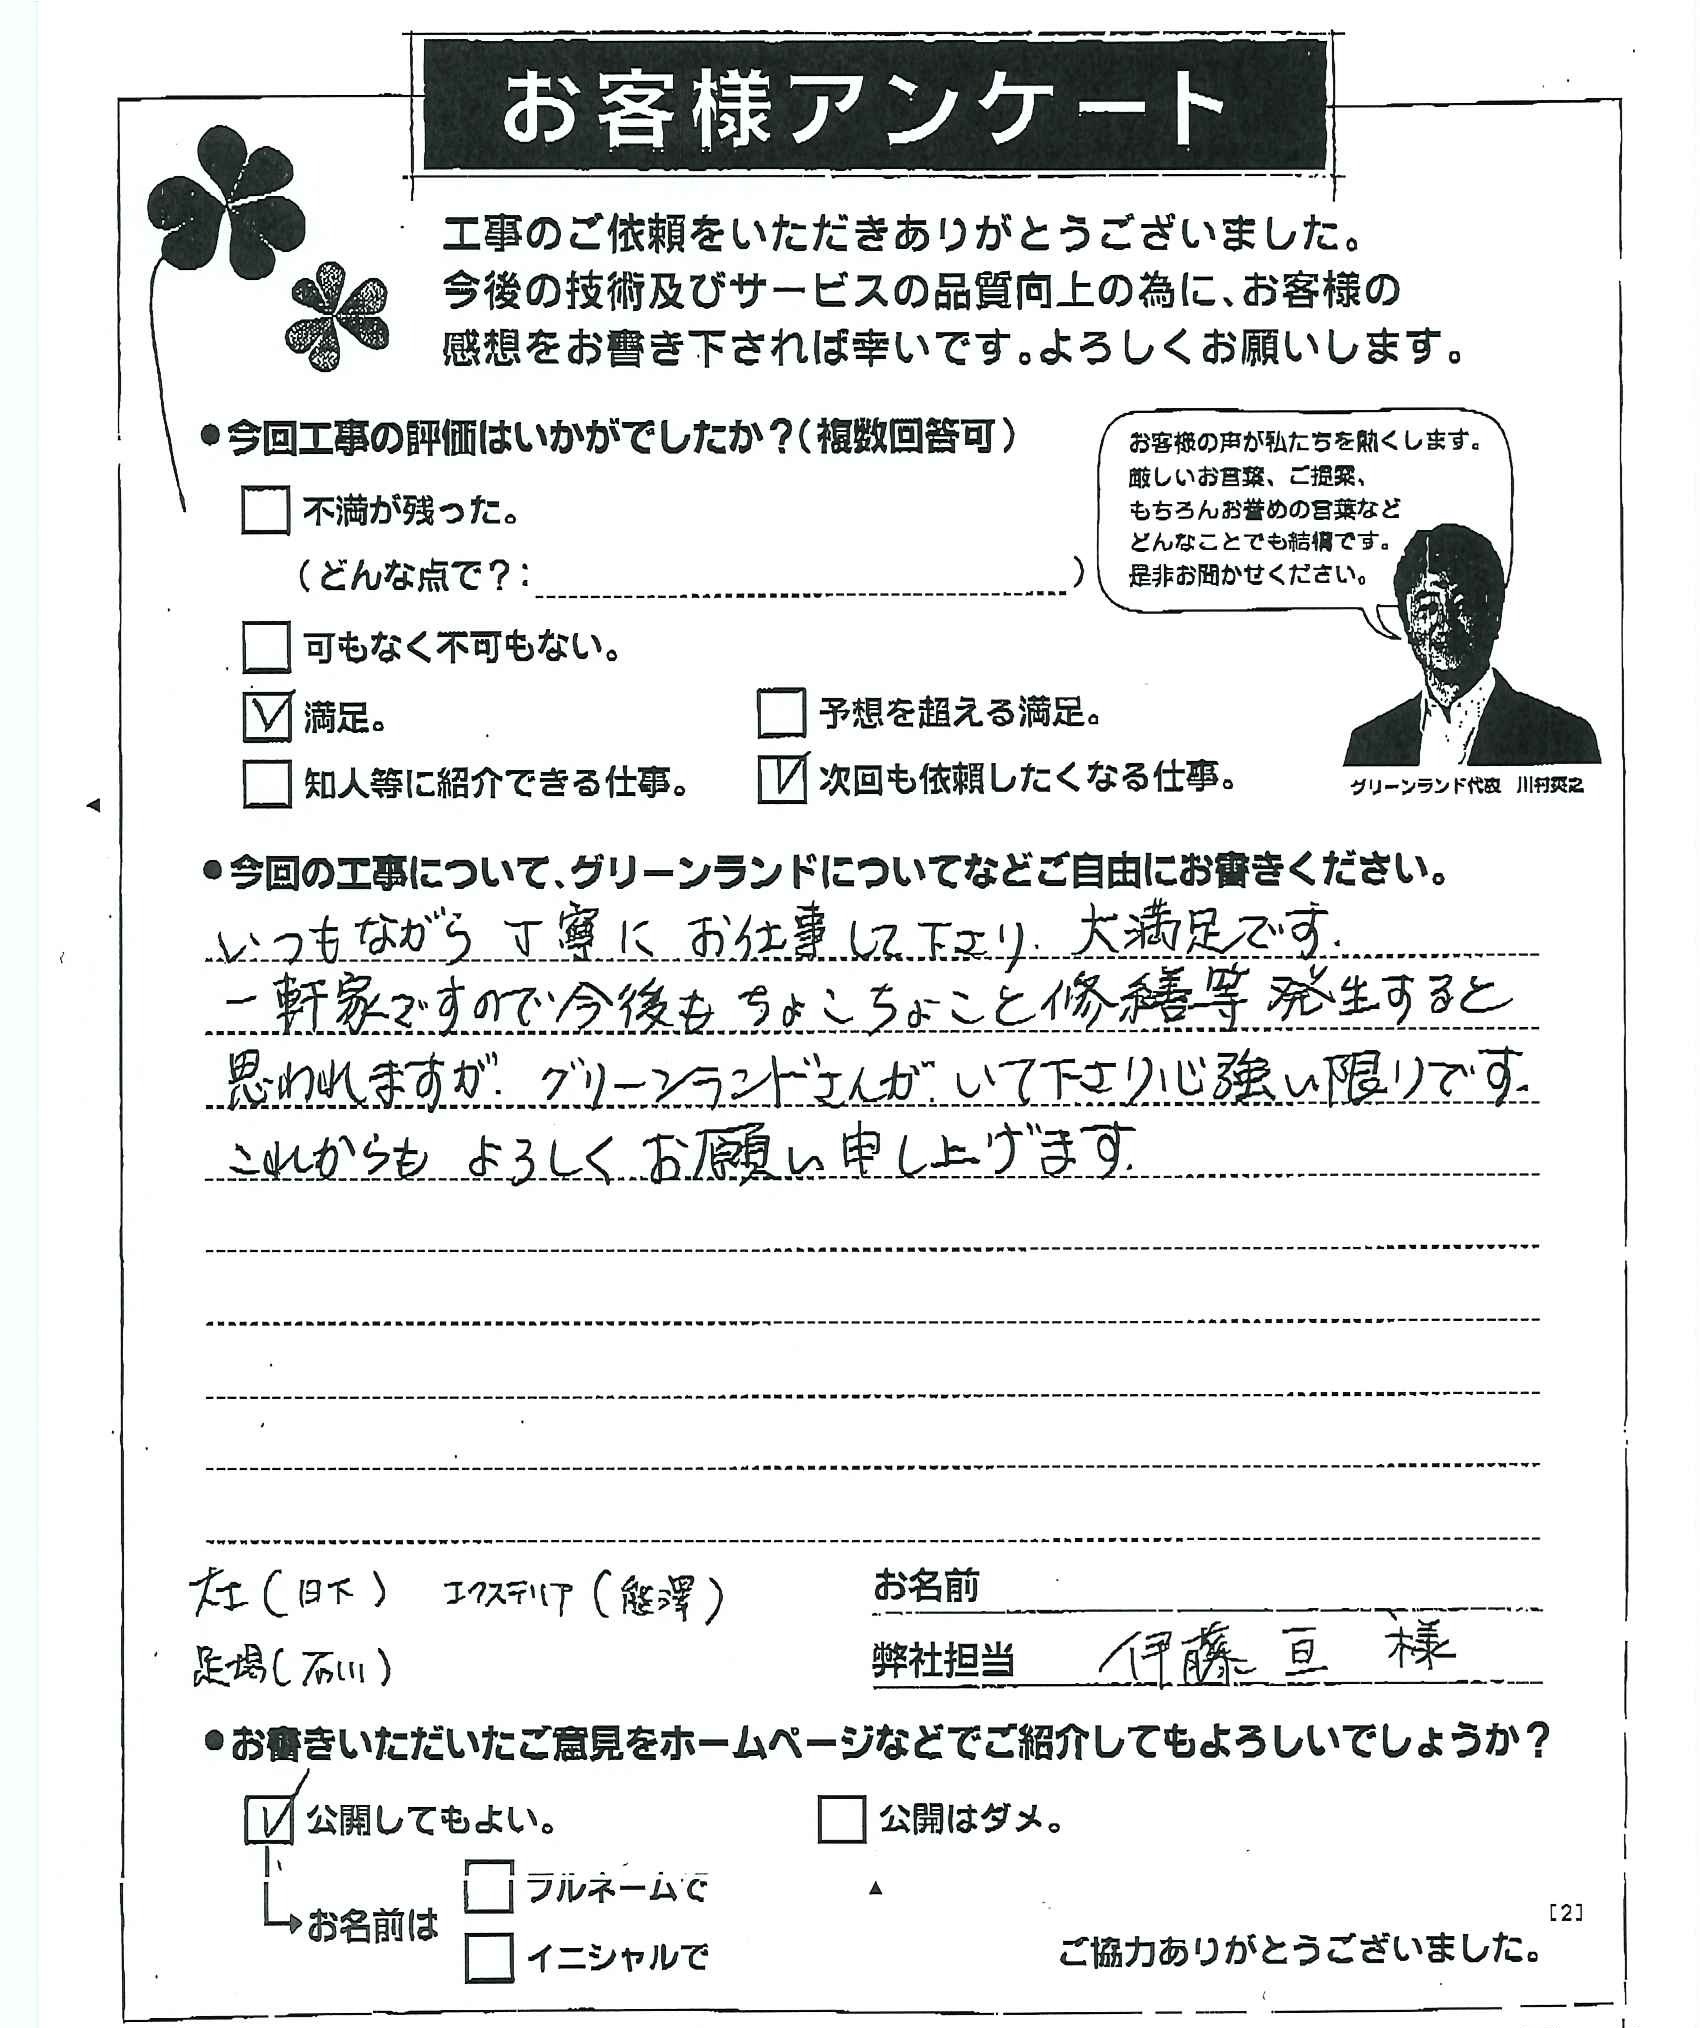 お客様アンケート
工事のご依頼をいただきありがとうございました。
今後の技術及びサービスの品質向上の為に、お客様の
感想をお書き下されば幸いです。よろしくお願いします。
●今回工事の評価はいかがでしたか？（複数回答可）
お客様の声が私たちを熱くします。
厳しいお言葉、ご提案、
もちろんお誉めの言葉など
どんなことでも結構です。
是非お聞かせください。
不満が残った。
（どんな点で？：　）
可もなく不可もない。
満足。
予想を超える満足。
知人等に紹介できる仕事。
次回も依頼したくなる仕事。
グリーンランド代表 川村
●今回の工事について、グリーンランドについてなどご自由にお書きください。
いつもながら 丁寧に お仕事して下さり、大満足です。
一軒家ですので今後も ちょこちょこと修繕等 発生すると
思われますが、グリーンランドさんが、いて下さり心強い限りです。
これからも よろしく お願い申し上げます。
大工（日下） エクステリア（熊澤）
お名前
足場（石川）
弊社担当 伊藤 亘 様
●お書きいただいたご意見をホームページなどでご紹介してもよろしいでしょうか？
公開してもよい。
公開はダメ。
お名前は
フルネームで
イニシャルで
[2]
ご協力ありがとうございました。